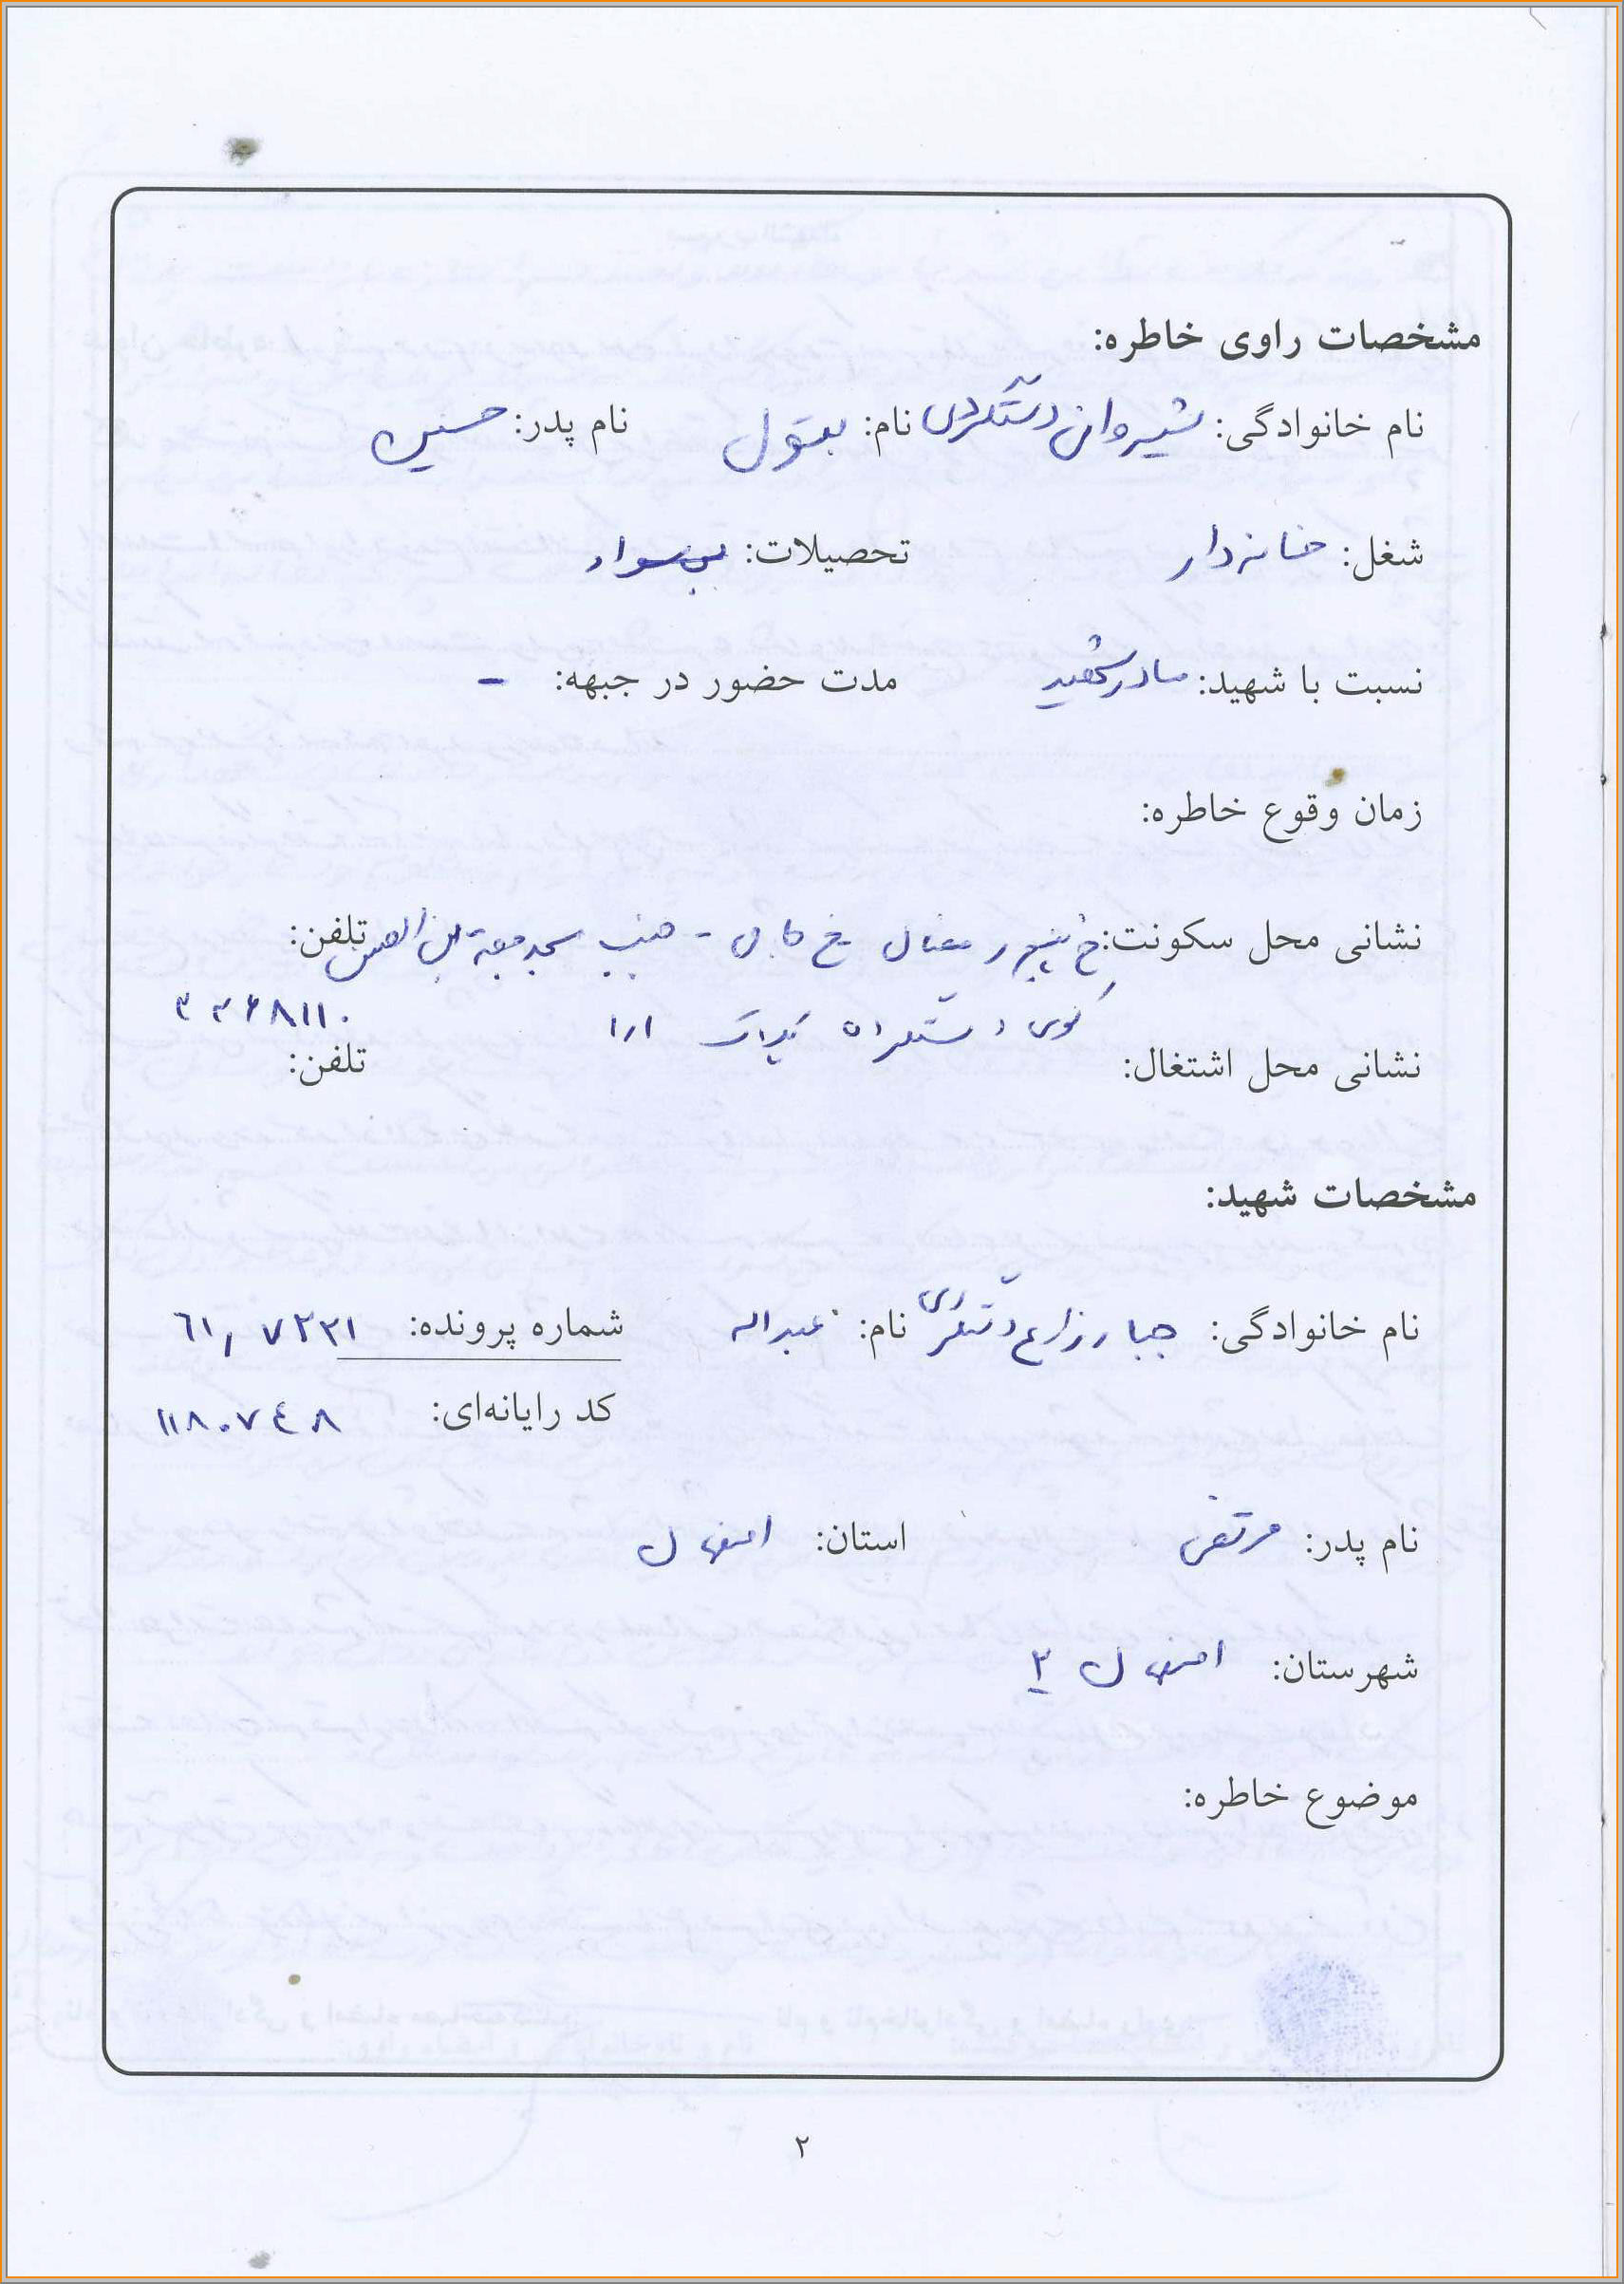 مشخصات راوی خاطره:
نام خانوادگی: شیروانی دستگردی نام: بتول نام پدر: حسین
شغل: خانه‌دار تحصیلات: بی‌سواد
نسبت با شهید: مادر شهید مدت حضور در جبهه: -
زمان وقوع خاطره:
نشانی محل سکونت: خ کاوه - جنب مسجد تلفن:
کوی پلاک ۱۰۱ ۳۳۶۸۱۱۰
نشانی محل اشتغال: تلفن:
مشخصات شهید:
نام خانوادگی: جبار زارع دستگردی نام: عبداله شماره پرونده: ۶۱/۷۲۳۱
کد رایانه‌ای: ۱۱۸۰۷۴۸
نام پدر: مرتضی استان: اصفهان
شهرستان: اصفهان ۲
موضوع خاطره:
۲